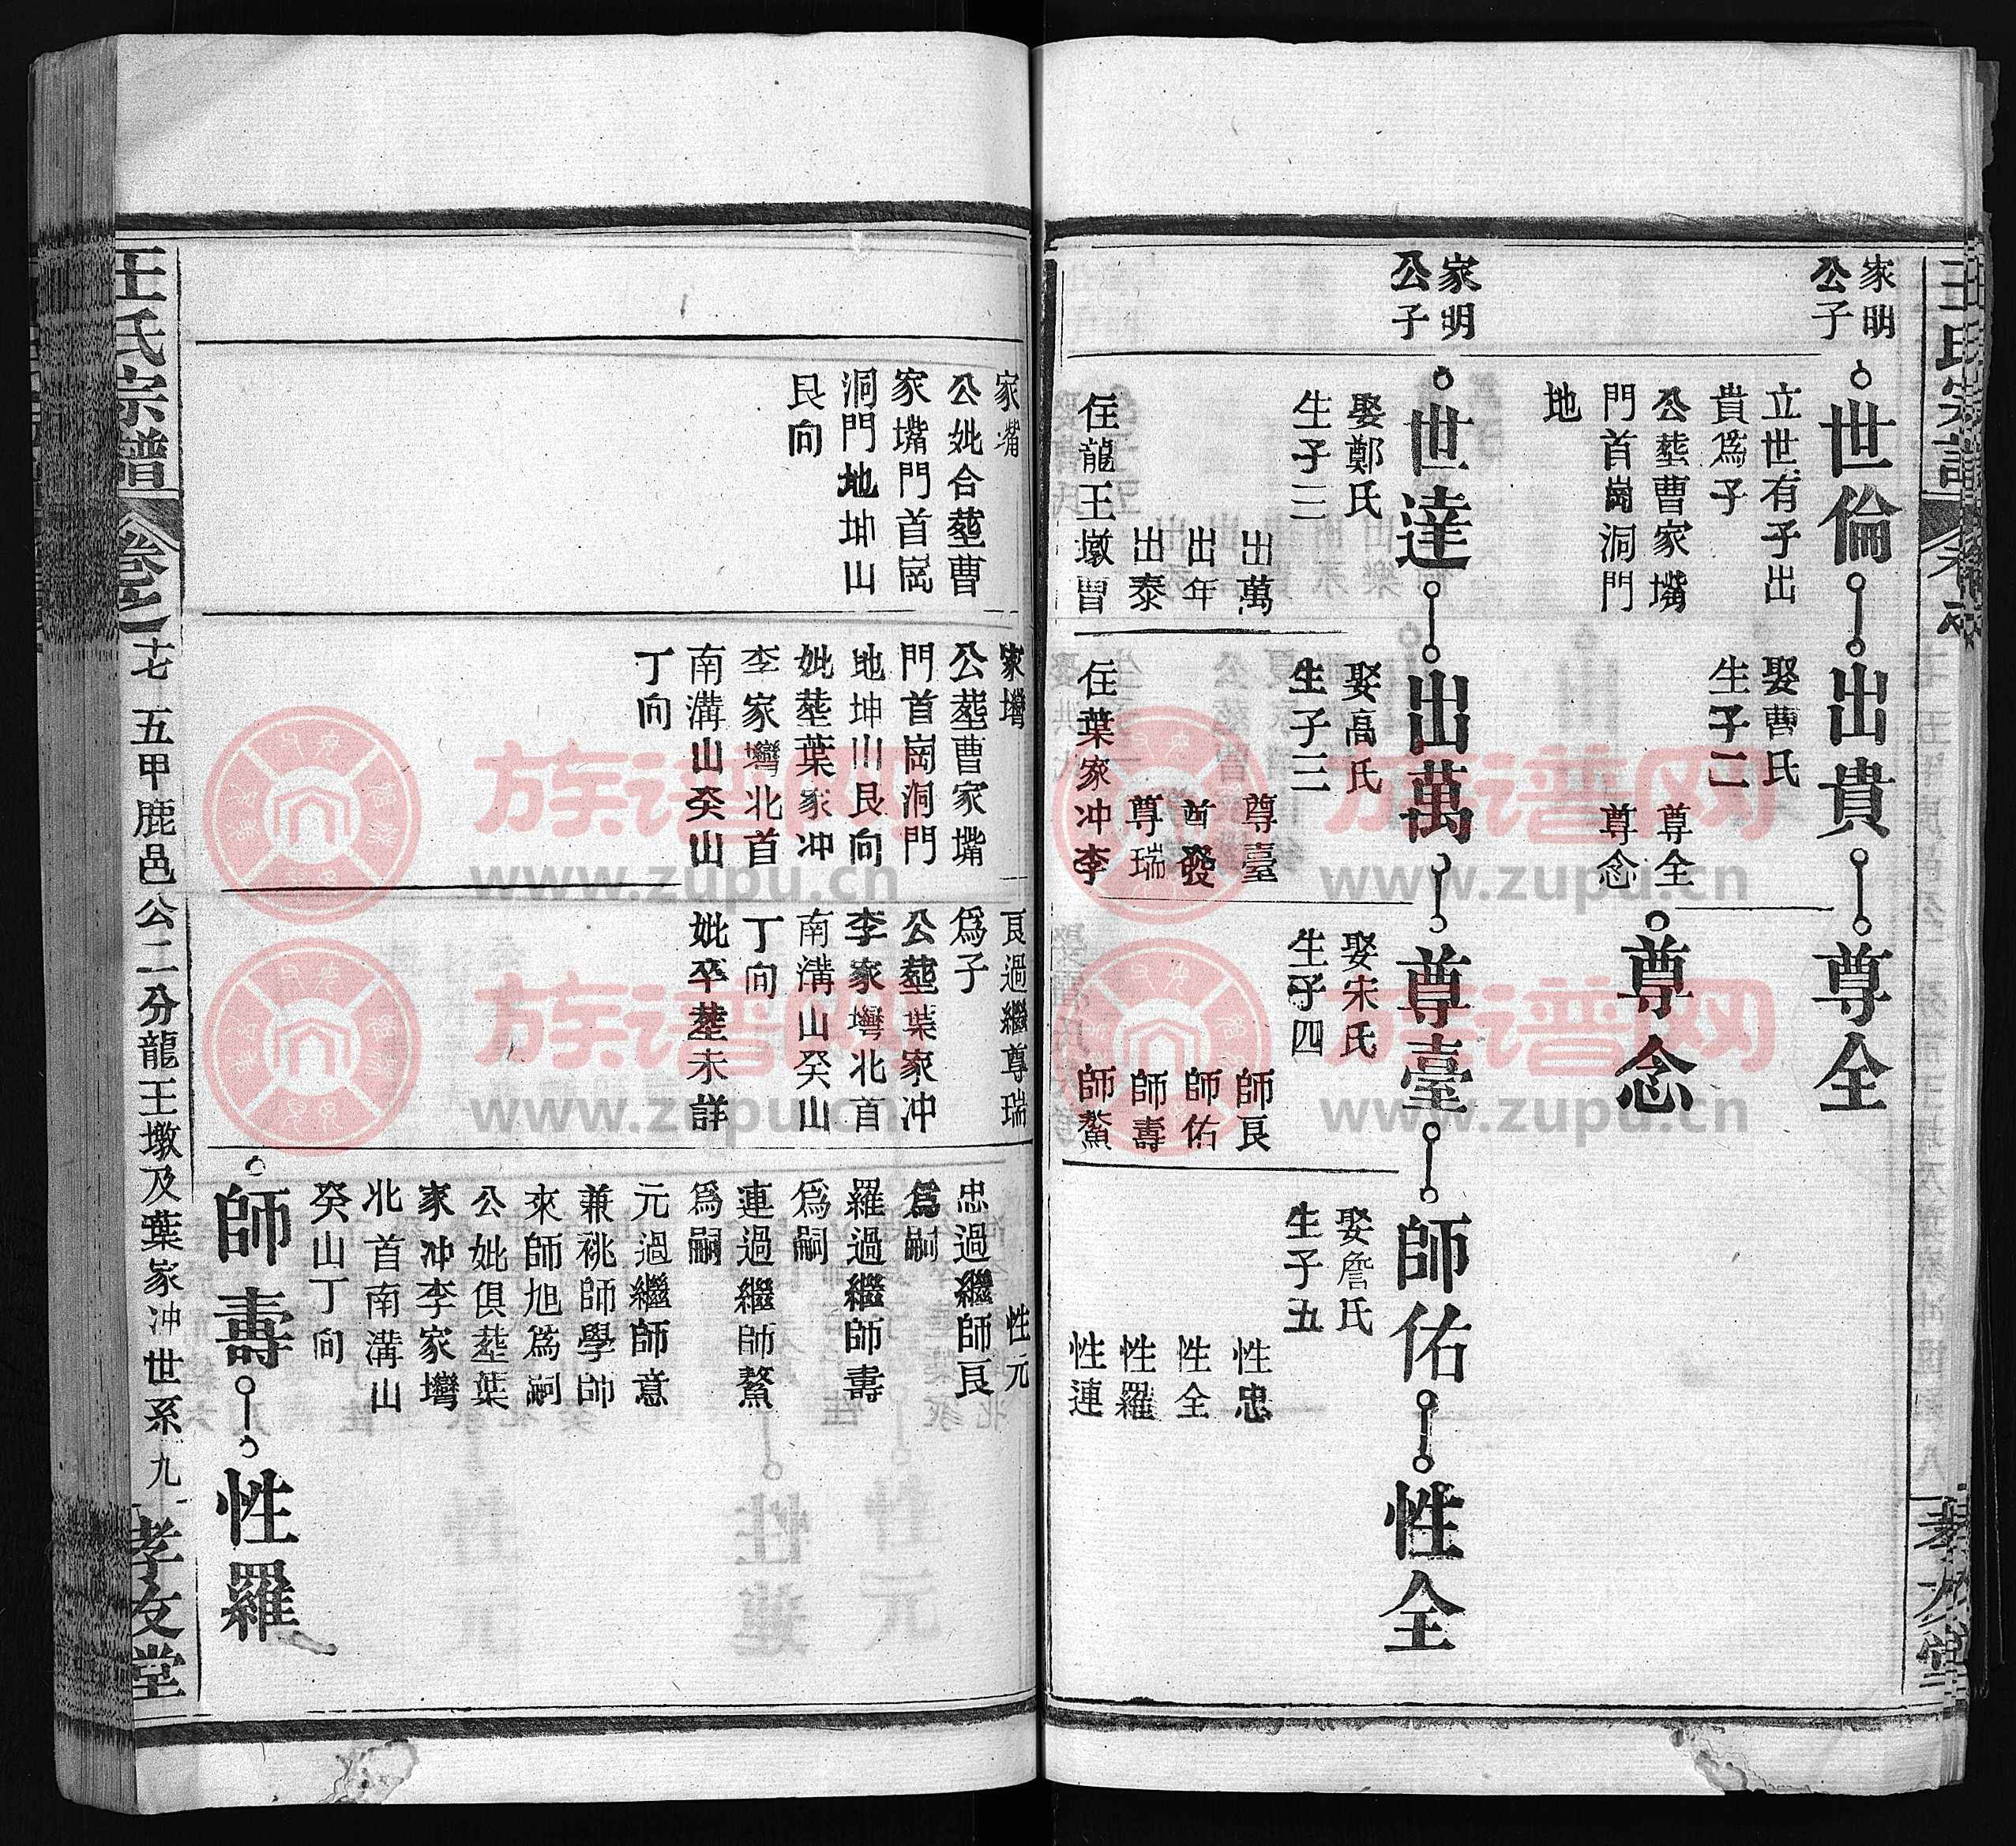 王氏宗譜
家明
公子
世倫
立世有子出
貴爲子
公塟曹家嘴
門首崗洞門
地
出貴
娶曹氏
生子二
尊全
尊念
尊全
尊念
家明
公子
世達
娶鄭氏
生子三
出萬
出年
出泰
住龍王墩曹
出萬
娶高氏
生子三
尊臺
尊瑞
住葉家冲李
尊臺
娶宋氏
生子四
師良
師佑
師壽
師鰲
師佑
娶詹氏
生子五
性忠
性全
性羅
性連
性全
家嘴
公妣合塟曹
家嘴門首崗
洞門地坤山
艮向
家壪
公塟曹家嘴
門首崗洞門
地坤山艮向
妣塟葉家冲
李家壪北首
南溝山癸山
丁向
良過繼尊瑞
爲子
公塟葉家冲
李家壪北首
南溝山癸山
丁向
妣卒塟未詳
性元
忠過繼師良
爲嗣
羅過繼師壽
爲嗣
連過繼師鰲
爲嗣
元過繼師意
兼祧師學師
來師旭爲嗣
公妣俱塟葉
家冲李家壪
北首南溝山
癸山丁向
師壽
性羅
王氏宗譜
卷之十七
五甲鹿邑公二分龍王墩及葉家冲世系
九
孝友堂
族谱网
www.zupu.cn
族谱网
www.zupu.cn
族谱网
www.zupu.cn
族谱网
www.zupu.cn